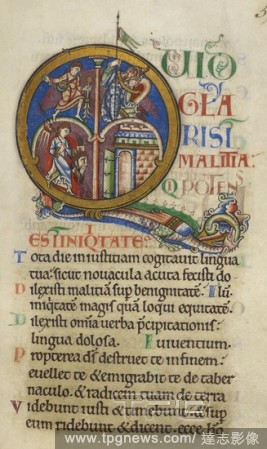 MALITIA:
Q POTENS
EST INIQTATE?
Tota die iniustitiam cogitauit lingua
tua: sicut nouacula acuta fecisti do
Dilexisti malitiā sup benignitatē:
iniqtatem magis quā loqui equitatē.
Dilexisti omīa uerba p̄cipitationis:
lingua dolosa. uiuentium.
Propterea d̄s destruet te in finem:
euellet te & emigrabit te de taber
naculo & radicem tuam de terra
Videbunt iusti & timebunt & sup
eum ridebunt & dicent: ecce ho
www.tpgnews.com / 達志影像